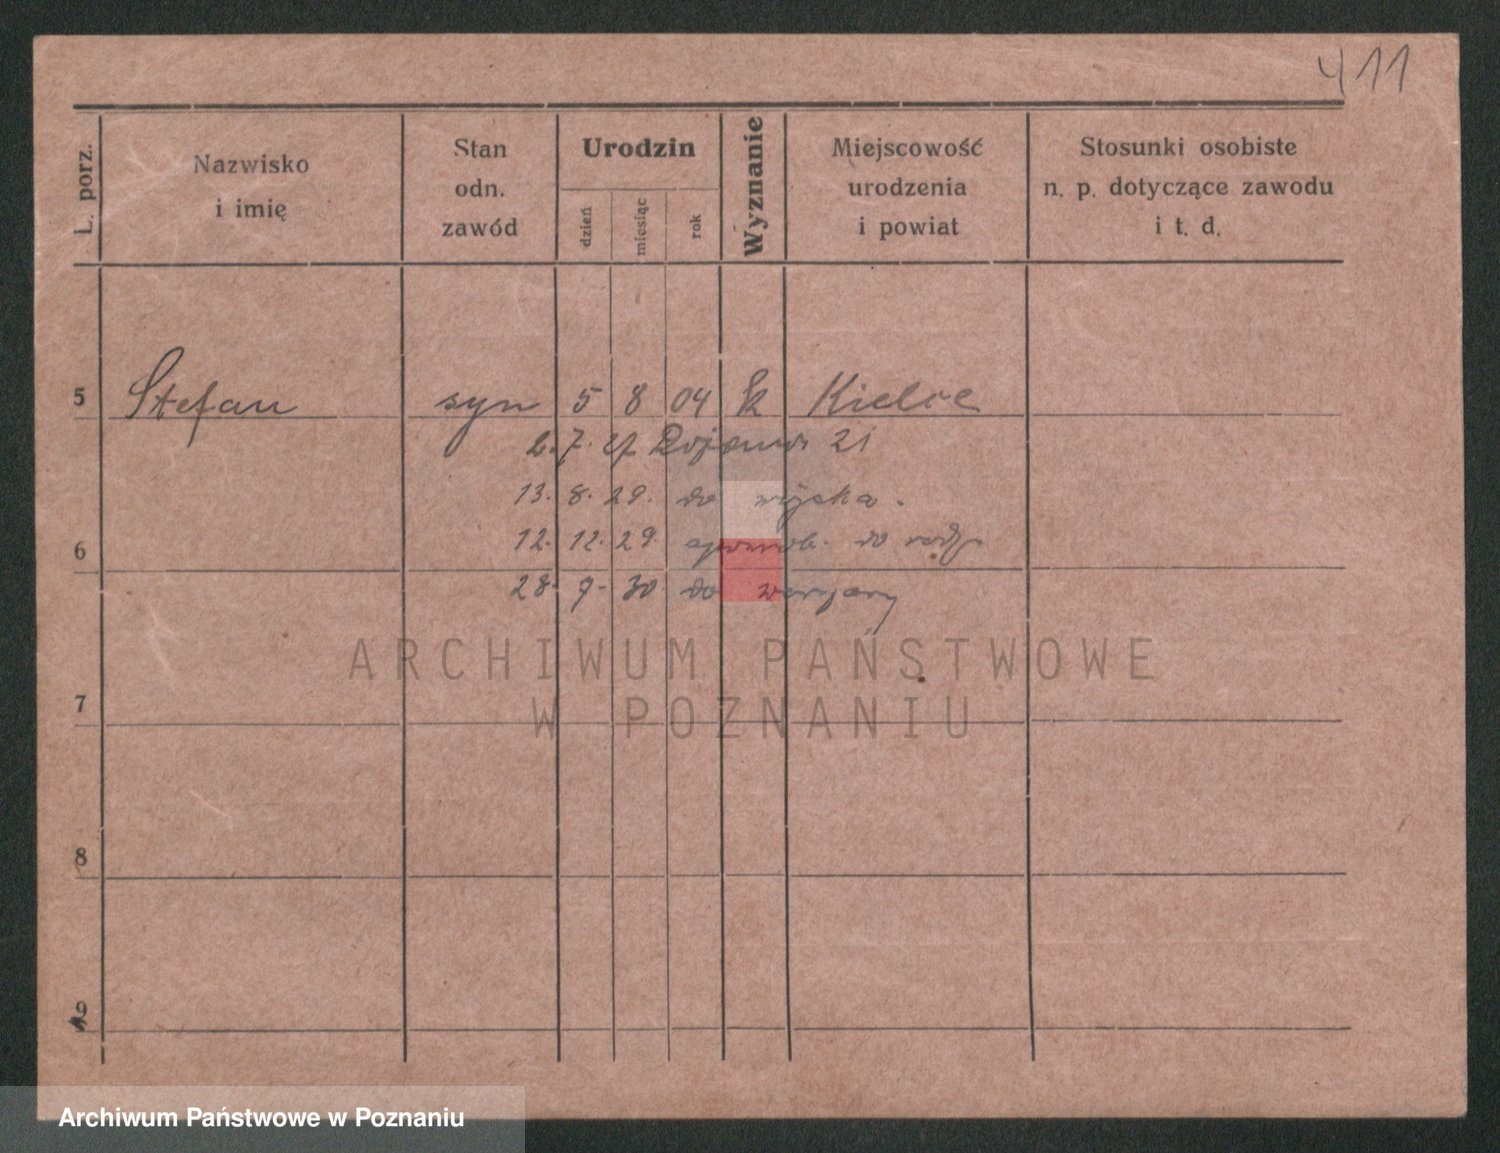 411
L. porz.
Nazwisko i imię
Stan odn. zawód
Urodzin
dzień
miesiąc
rok
Wyznanie
Miejscowość urodzenia i powiat
Stosunki osobiste n. p. dotyczące zawodu i t. d.
5 Stefan syn 5 8 04 k Kielce
2. 7. 27 21
13. 8. 29. do wojska.
6 12. 12. 29. do
28. 9. 30 do Warszawy
ARCHIWUM PAŃSTWOWE
W POZNANIU
7
8
9
Archiwum Państwowe w Poznaniu